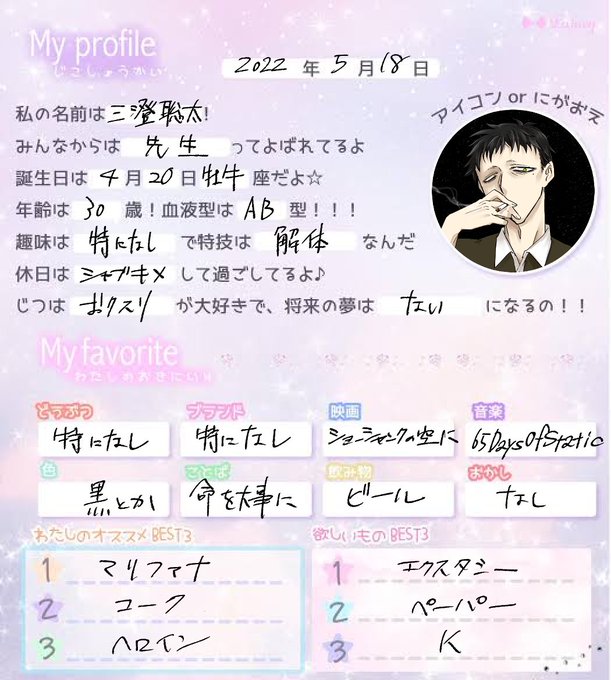 My profile
じこしょうかい
2022 年 5 月 18 日
アイコン or にがおえ
私の名前は三澄聡太!
みんなからは 先生 ってよばれてるよ
誕生日は 4 月 20 日 牡牛 座だよ☆
年齢は 30 歳!血液型は AB 型!!!
趣味は 特になし で特技は 解体 なんだ
休日は シャブキメ して過ごしてるよ♪
じつは おクスリ が大好きで、将来の夢は ない になるの!!
My favorite
わたしのおきにいり
どうぶつ ブランド 映画 音楽
特になし 特になし ショーシャンクの空に 65DaysOfStatic
色 ことば 飲み物 おかし
黒とか 命を大事に ビール なし
わたしのオススメ BEST3 欲しいもの BEST3
1 マリファナ 1 エクスタシー
2 コーク 2 ペーパー
3 ヘロイン 3 K